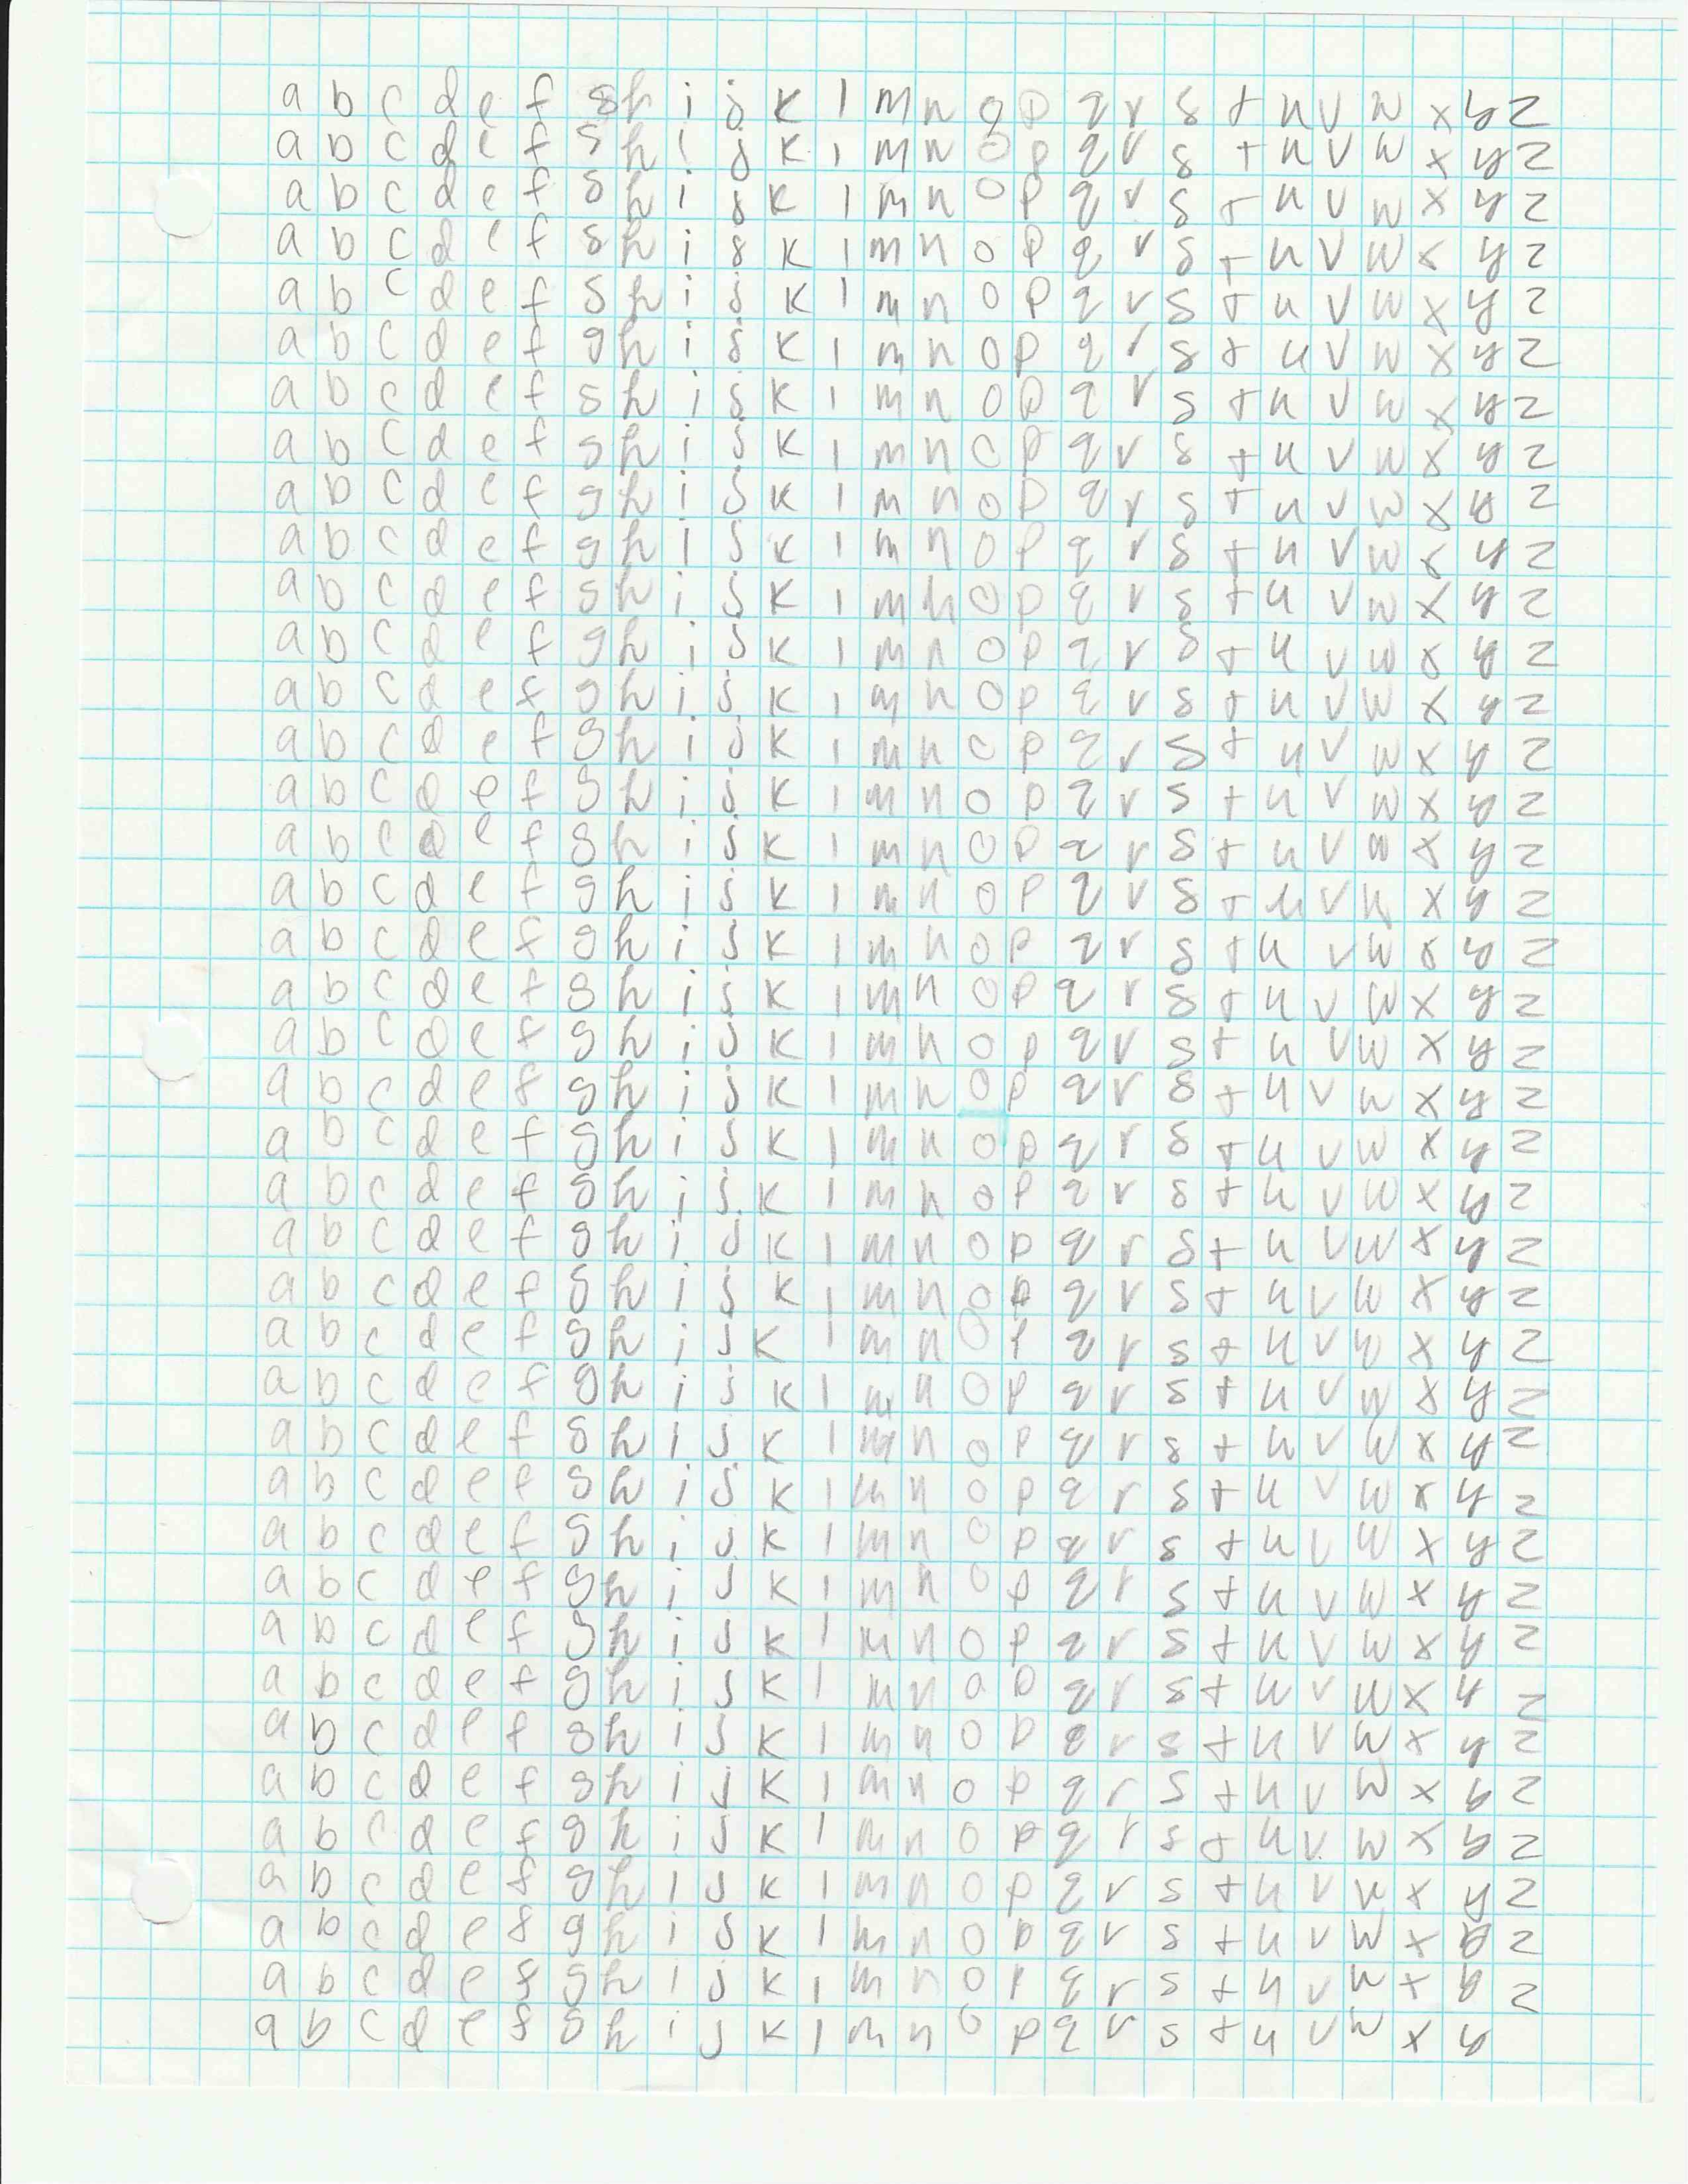 a b c d e f g h i j k l m n o p q r s t u v w x y z
a b c d e f g h i j k l m n o p q r s t u v w x y z
a b c d e f g h i j k l m n o p q r s t u v w x y z
a b c d e f g h i j k l m n o p q r s t u v w x y z
a b c d e f g h i j k l m n o p q r s t u v w x y z
a b c d e f g h i j k l m n o p q r s t u v w x y z
a b c d e f g h i j k l m n o p q r s t u v w x y z
a b c d e f g h i j k l m n o p q r s t u v w x y z
a b c d e f g h i j k l m n o p q r s t u v w x y z
a b c d e f g h i j k l m n o p q r s t u v w x y z
a b c d e f g h i j k l m n o p q r s t u v w x y z
a b c d e f g h i j k l m n o p q r s t u v w x y z
a b c d e f g h i j k l m n o p q r s t u v w x y z
a b c d e f g h i j k l m n o p q r s t u v w x y z
a b c d e f g h i j k l m n o p q r s t u v w x y z
a b c d e f g h i j k l m n o p q r s t u v w x y z
a b c d e f g h i j k l m n o p q r s t u v w x y z
a b c d e f g h i j k l m n o p q r s t u v w x y z
a b c d e f g h i j k l m n o p q r s t u v w x y z
a b c d e f g h i j k l m n o p q r s t u v w x y z
a b c d e f g h i j k l m n o p q r s t u v w x y z
a b c d e f g h i j k l m n o p q r s t u v w x y z
a b c d e f g h i j k l m n o p q r s t u v w x y z
a b c d e f g h i j k l m n o p q r s t u v w x y z
a b c d e f g h i j k l m n o p q r s t u v w x y z
a b c d e f g h i j k l m n o p q r s t u v w x y z
a b c d e f g h i j k l m n o p q r s t u v w x y z
a b c d e f g h i j k l m n o p q r s t u v w x y z
a b c d e f g h i j k l m n o p q r s t u v w x y z
a b c d e f g h i j k l m n o p q r s t u v w x y z
a b c d e f g h i j k l m n o p q r s t u v w x y z
a b c d e f g h i j k l m n o p q r s t u v w x y z
a b c d e f g h i j k l m n o p q r s t u v w x y z
a b c d e f g h i j k l m n o p q r s t u v w x y z
a b c d e f g h i j k l m n o p q r s t u v w x y z
a b c d e f g h i j k l m n o p q r s t u v w x y z
a b c d e f g h i j k l m n o p q r s t u v w x y z
a b c d e f g h i j k l m n o p q r s t u v w x y z
a b c d e f g h i j k l m n o p q r s t u v w x y z
a b c d e f g h i j k l m n o p q r s t u v w x y